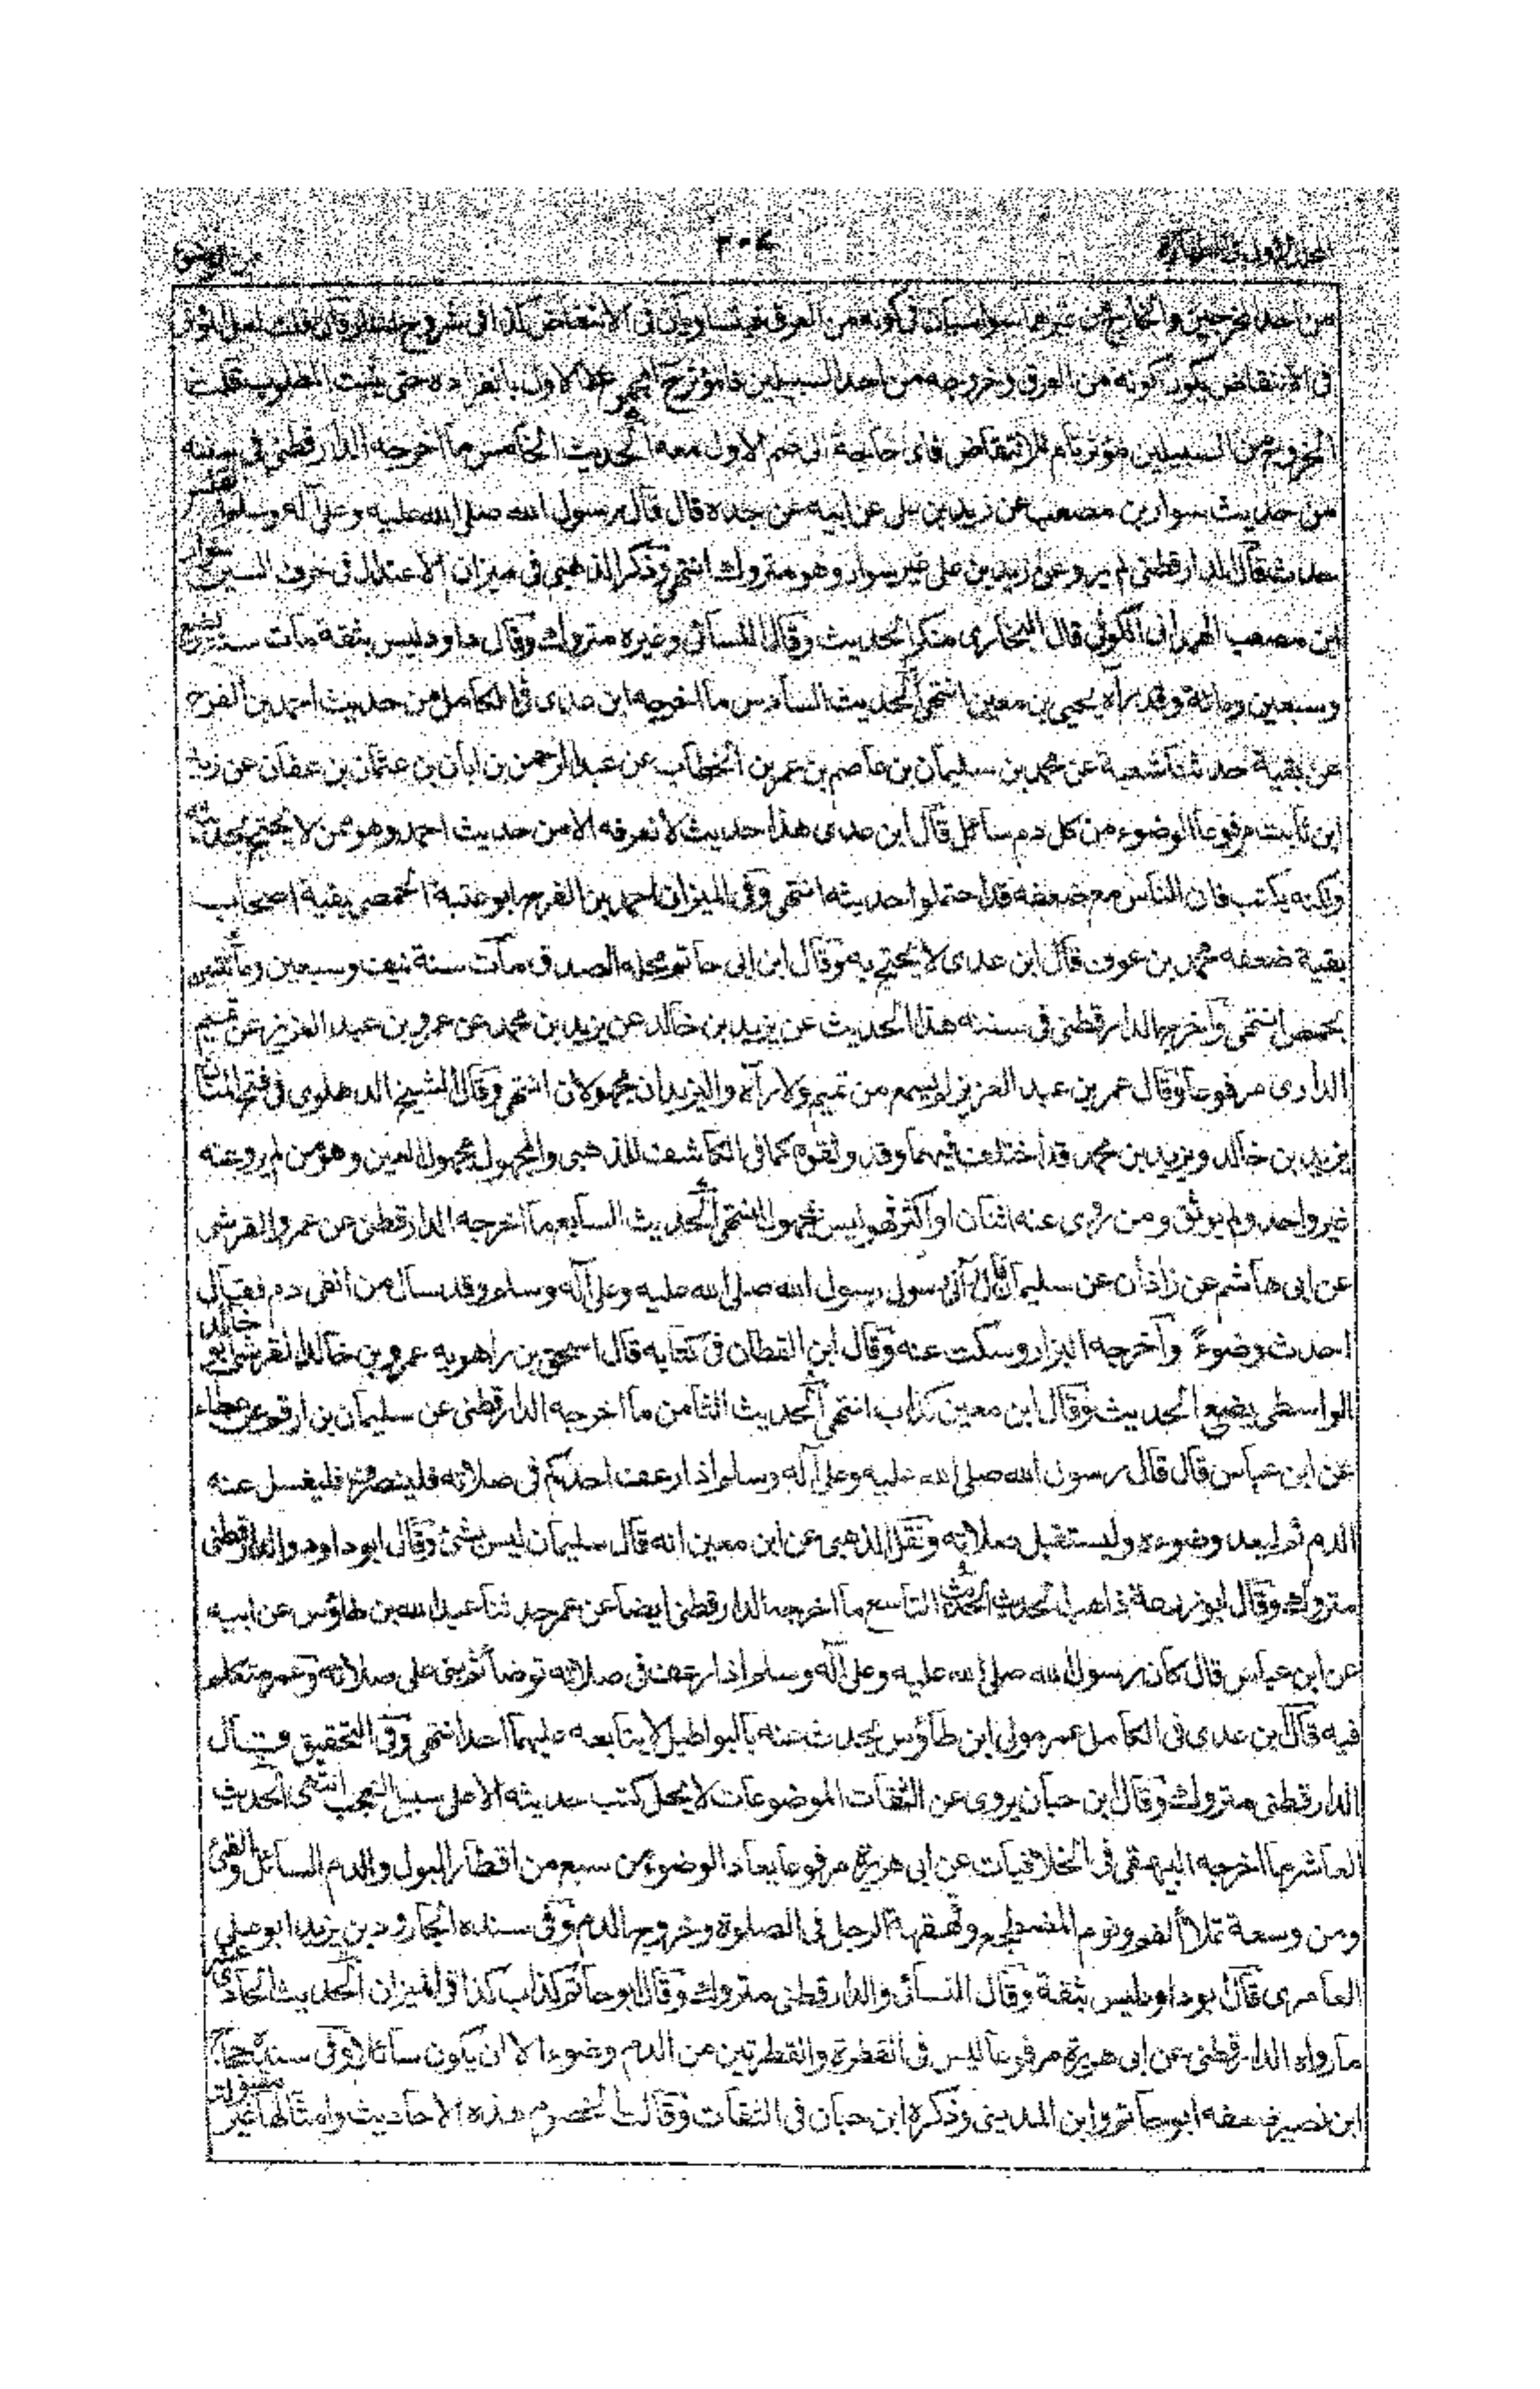 المجلد الاول فى الطهارة
٢٠٤
من احد المخرجين والخارج من غيرهما سواسيان فى كونه من العرق فيتساويان فى الانتقاض كذا فى شروح فان قلت لعل المؤثر
فى الانتقاض يكون كونه من العرق وخروجه من احد السبيلين فالمؤثر ح المجموع لا الاول بانفراده حتى يثبت المطلوب قلت
الخروج من السبيلين مؤثر تام للانتقاض فاى حاجة الى ضم الاول معه الحديث الخامس ما اخرجه الدارقطنى فى سننه
من حديث سوار بن مصعب عن زيد بن على عن ابيه عن جده قال قال رسول الله صلى الله عليه وعلى آله وسلم القلس
حدث قال الدارقطنى لم يروه عن زيد بن على غير سوار وهو متروك انتهى وذكر الذهبى فى ميزان الاعتدال فى حرف السين سوار
ابن مصعب الهمدانى الكوفى قال البخارى منكر الحديث وقال النسائى وغيره متروك وقال داود ليس بثقة مات سنة بضع
وسبعين ومائة وقد رآه يحيى بن معين انتهى الحديث السادس ما اخرجه ابن عدى فى الكامل من حديث احمد بن الفرج
عن بقية حدثنا شعبة عن محمد بن سليمان بن عاصم بن عمر بن الخطاب عن عبد الرحمن بن ابان بن عثمان بن عفان عن زيد
ابن ثابت مرفوعا الوضوء من كل دم سائل قال ابن عدى هذا حديث لا نعرفه الا من حديث احمد وهو ممن لا يحتج بحديثه
ولكنه يكتب فان الناس مع ضعفه قد احتملوا حديثه انتهى وفى الميزان احمد بن الفرج ابو عتبة الحمصى بقية اصحاب
بقية ضعفه محمد بن عوف قال ابن عدى لا يحتج به وقال ابن ابى حاتم محله الصدق مات سنة نيف وسبعين ومأتين
بحمص انتهى واخرج الدارقطنى فى سننه هذا الحديث عن يزيد بن خالد عن يزيد بن محمد عن عمرو بن عبد العزيز عن تميم
الدارى مرفوعا وقال عمر بن عبد العزيز لم يسمع من تميم ولا رآه واليزيدان مجهولان انتهى وقال الشيخ الدهلوى فى فتح المنان
يزيد بن خالد ويزيد بن محمد قد اختلف فيهما وقد وثقوهما كما فى الكاشف للذهبى والمجهول مجهول العين وهو من لم يرو عنه
غير واحد ولم يوثق ومن روى عنه اثنان او اكثر فهو ليس بمجهول انتهى الحديث السابع ما اخرجه الدارقطنى عن عمرو القرشى
عن ابى هاشم عن زاذان عن سليمان قال رآنى رسول الله صلى الله عليه وعلى آله وسلم وقد سال من انفى دم فقال
احدث وضوءً واخرجه البزار وسكت عنه وقال ابن القطان فى كتابه قال اسحق بن راهويه عمرو بن خالد القرشى ابو خالد
الواسطى يضع الحديث وقال ابن معين كذاب انتهى الحديث الثامن ما اخرجه الدارقطنى عن سليمان بن ارقم عن عطاء
عن ابن عباس قال قال رسول الله صلى الله عليه وعلى آله وسلم اذا رعف احدكم فى صلاته فلينصرف فليغسل عنه
الدم ثم ليعد وضوءه وليستقبل صلاته ونقل الذهبى عن ابن معين انه قال سليمان ليس بشئ وقال ابو داود والدارقطنى
متروك وقال ابو زرعة ذاهب الحديث الحديث التاسع ما اخرجه الدارقطنى ايضا عن عمر حدثنا عبد الله بن طاؤس عن ابيه
عن ابن عباس قال كان رسول الله صلى الله عليه وعلى آله وسلم اذا رعف فى صلاته توضأ ثم بنى على صلاته وعمر متكلم
فيه قال ابن عدى فى الكامل عمر مولى ابن طاؤس يحدث عنه بالبواطيل لا يتابعه عليها احد انتهى وفى التحقيق قال
الدارقطنى متروك وقال ابن حبان يروى عن الثقات الموضوعات لا يحل كتب حديثه الا على سبيل التعجب انتهى الحديث
العاشر ما اخرجه البيهقى فى الخلافيات عن ابى هريرة مرفوعا يعاد الوضوء من سبع من اقطار البول والدم السائل والقئ
ومن وسعة تملأ الفم ونوم المضطجع وقهقهة الرجل فى الصلوة وخروج الدم وفى سنده الجارود بن يزيد ابو على
العامرى قال ابو داود ليس بثقة وقال النسائى والدارقطنى متروك وقال ابو حاتم كذاب كذا فى الميزان الحديث الحادى عشر
ما رواه الدارقطنى عن ابى هريرة مرفوعا ليس فى القطرة والقطرتين من الدم وضوء الا ان يكون سائلا وفى سنده حجاج
ابن نصير ضعفه ابو حاتم وابن المدينى وذكره ابن حبان فى الثقات وقالت الخصوم هذه الاحاديث وامثالها غير